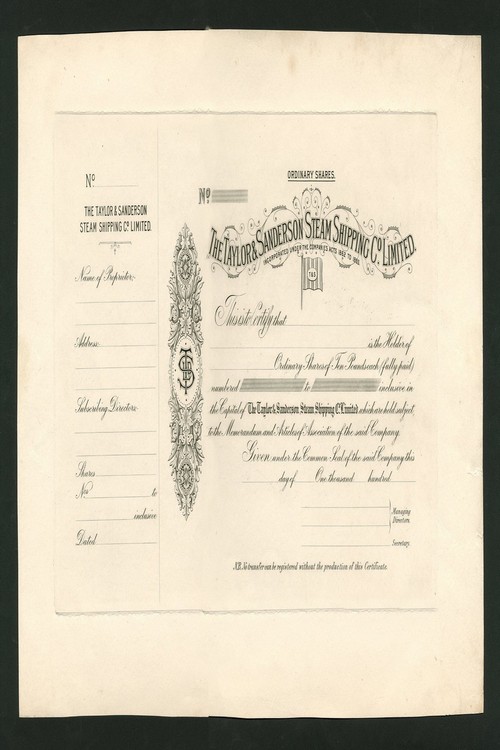 No
THE TAYLOR & SANDERSON
STEAM SHIPPING Co LIMITED.
Name of Proprietor
Address
Subscribing Directors
Shares
Nos to
inclusive
Dated
ORDINARY SHARES.
No
THE TAYLOR & SANDERSON STEAM SHIPPING Co. LIMITED.
INCORPORATED UNDER THE COMPANIES ACTS 1862 TO 1900.
T&S
This is to Certify that
is the Holder of
Ordinary Shares of Ten Pounds each (fully paid)
numbered to inclusive in
the Capital of The Taylor & Sanderson Steam Shipping Co. Limited which are held subject
to the Memorandum and Articles of Association of the said Company.
Given under the Common Seal of the said Company this
day of One thousand hundred
Managing
Directors.
Secretary.
N.B. No transfer can be registered without the production of this Certificate.